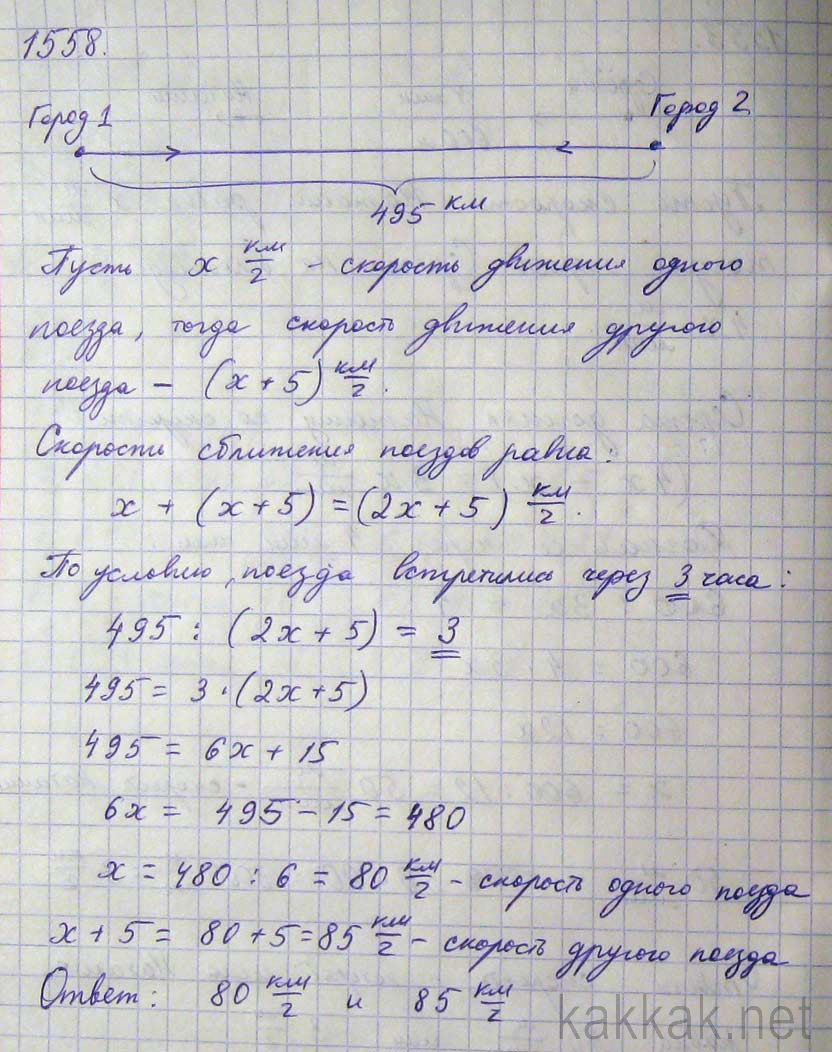 1558.
Город 1 Город 2
495 км
Пусть x км/ч - скорость движения одного
поезда, тогда скорость движения другого
поезда - (x + 5) км/ч.
Скорость сближения поездов равна:
x + (x + 5) = (2x + 5) км/ч.
По условию, поезда встретились через 3 часа:
495 : (2x + 5) = 3
495 = 3 · (2x + 5)
495 = 6x + 15
6x = 495 - 15 = 480
x = 480 : 6 = 80 км/ч - скорость одного поезда
x + 5 = 80 + 5 = 85 км/ч - скорость другого поезда
Ответ: 80 км/ч и 85 км/ч
kakkak.net